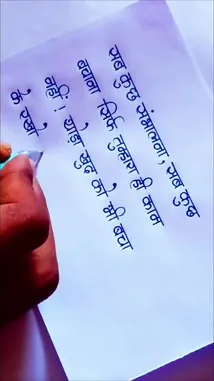 सब कुछ संभालना, सब कुछ
बचाना सिर्फ तुम्हारा ही काम
नहीं। थोड़ा खुद को भी बचा
के रखो